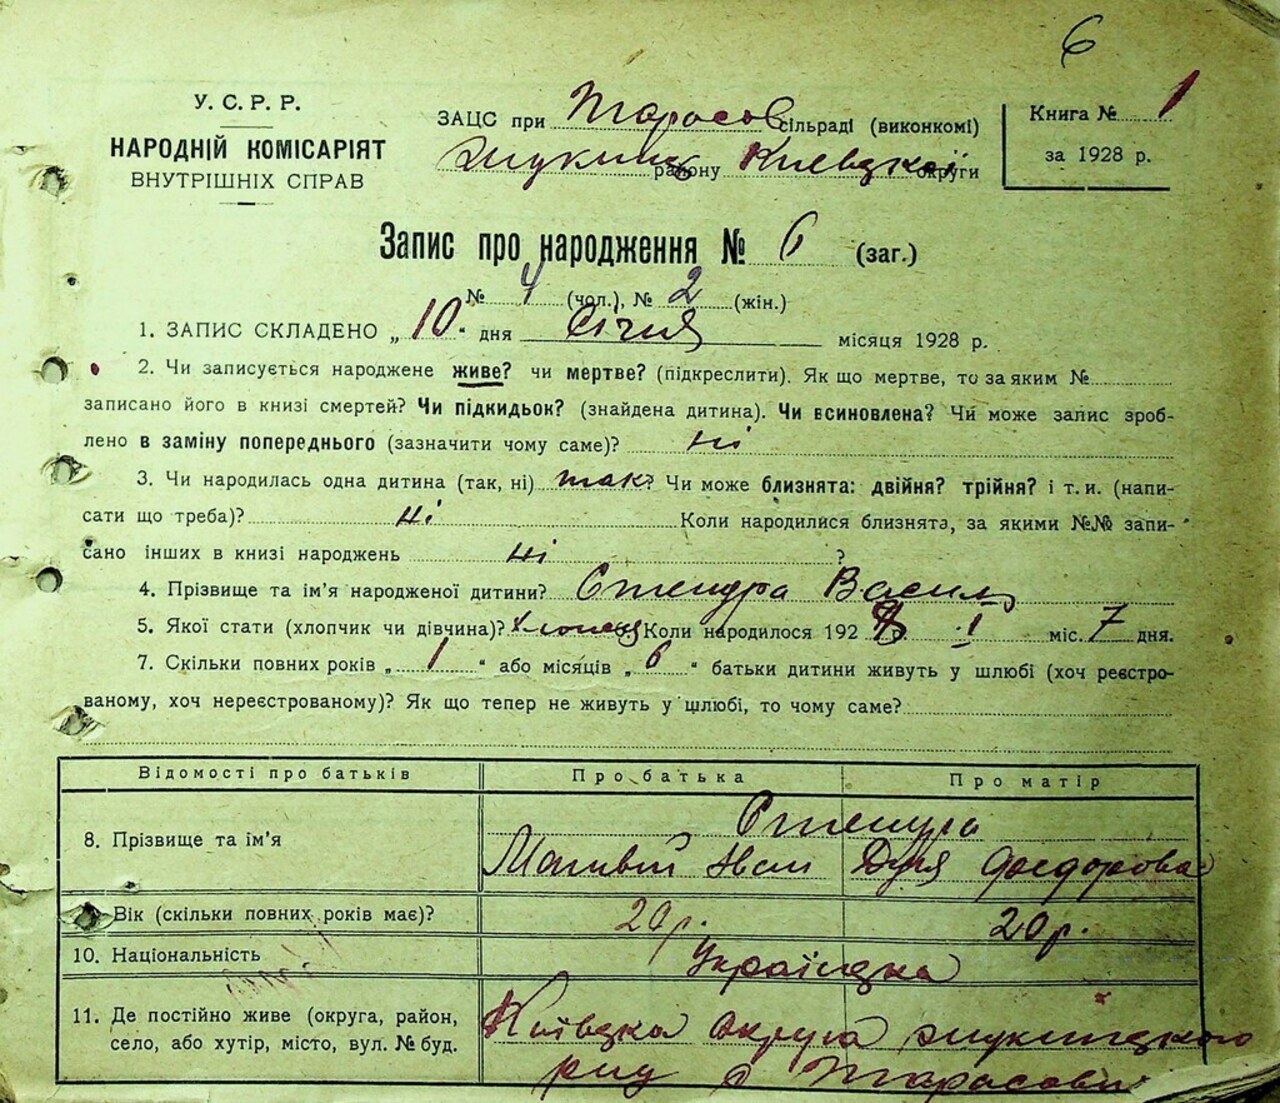 6
У. С. Р. Р.
НАРОДНІЙ КОМІСАРІЯТ
ВНУТРІШНІХ СПРАВ
ЗАЦС при Тарасов сільраді (виконкомі)
району Київської округи
Книга № 1
за 1928 р.
Запис про народження № 6 (заг.)
№ 4 (чол.), № 2 (жін.)
1. ЗАПИС СКЛАДЕНО „ 10 “ дня Січня місяця 1928 р.
2. Чи записується народжене живе? чи мертве? (підкреслити). Як що мертве, то за яким №
записано його в книзі смертей? Чи підкидьок? (знайдена дитина). Чи всиновлена? Чи може запис зроб-
лено в заміну попереднього (зазначити чому саме)? ні
3. Чи народилась одна дитина (так, ні) так? Чи може близнята: двійня? трійня? і т. и. (напи-
сати що треба)? ні Коли народилися близнята, за якими №№ запи-
сано інших в книзі народжень ні ?
4. Прізвище та ім’я народженої дитини? Василь
5. Якої стати (хлопчик чи дівчина)? хлопець Коли народилося 192 8 I міс. 7 дня.
7. Скільки повних років „ 1 “ або місяців „ 6 “ батьки дитини живуть у шлюбі (хоч реєстро-
ваному, хоч нереєстрованому)? Як що тепер не живуть у шлюбі, то чому саме?
Відомості про батьків Про батька Про матір
8. Прізвище та ім’я
Матвій Іван Федорова
Вік (скільки повних років має)? 20 р. 20 р.
10. Національність Українська
11. Де постійно живе (округа, район,
село, або хутір, місто, вул. № буд.
Київська округа
с Тарасовка